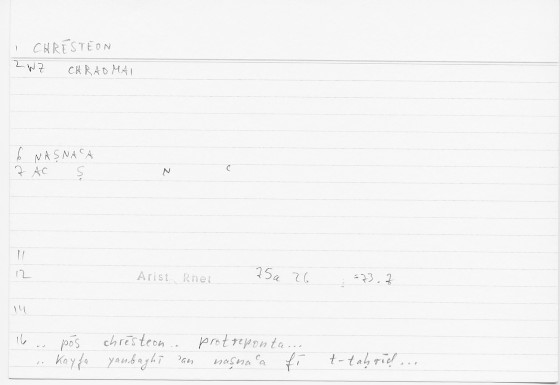 1 CHRĒSTEON
2 WZ CHRAOMAI
6 NAṢNAʿA
7 AC Ṣ N ʿ
11
12 Arist. Rhet 75a 26 : =73.7
14
16 .. pōs chrēsteon .. protreponta...
.. kayfa yanbaghī ʾan naṣnaʿa fī t-taḥrīḍ...